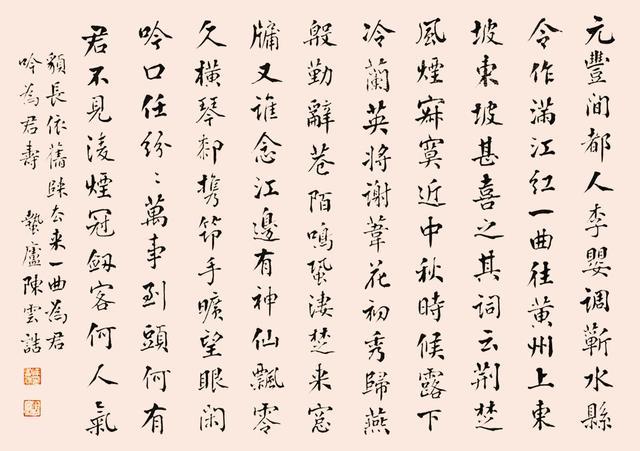 元豐間都人李嬰調蘄水縣
令作滿江紅一曲往黃州上東
坡東坡甚喜之其詞云荆楚
風煙寂寞近中秋時候露下
冷蘭英將謝葦花初秀歸燕
殷勤辭巷陌鳴蛩淒楚来窓
牖又誰念江邊有神仙飄零
久橫琴厀携筇手曠望眼閑
吟口任紛〻萬事到頭何有
君不見凌煙冠劔客何人氣
貌長依舊歸去来一曲為君
吟為君壽 蟄廬陳雲誥